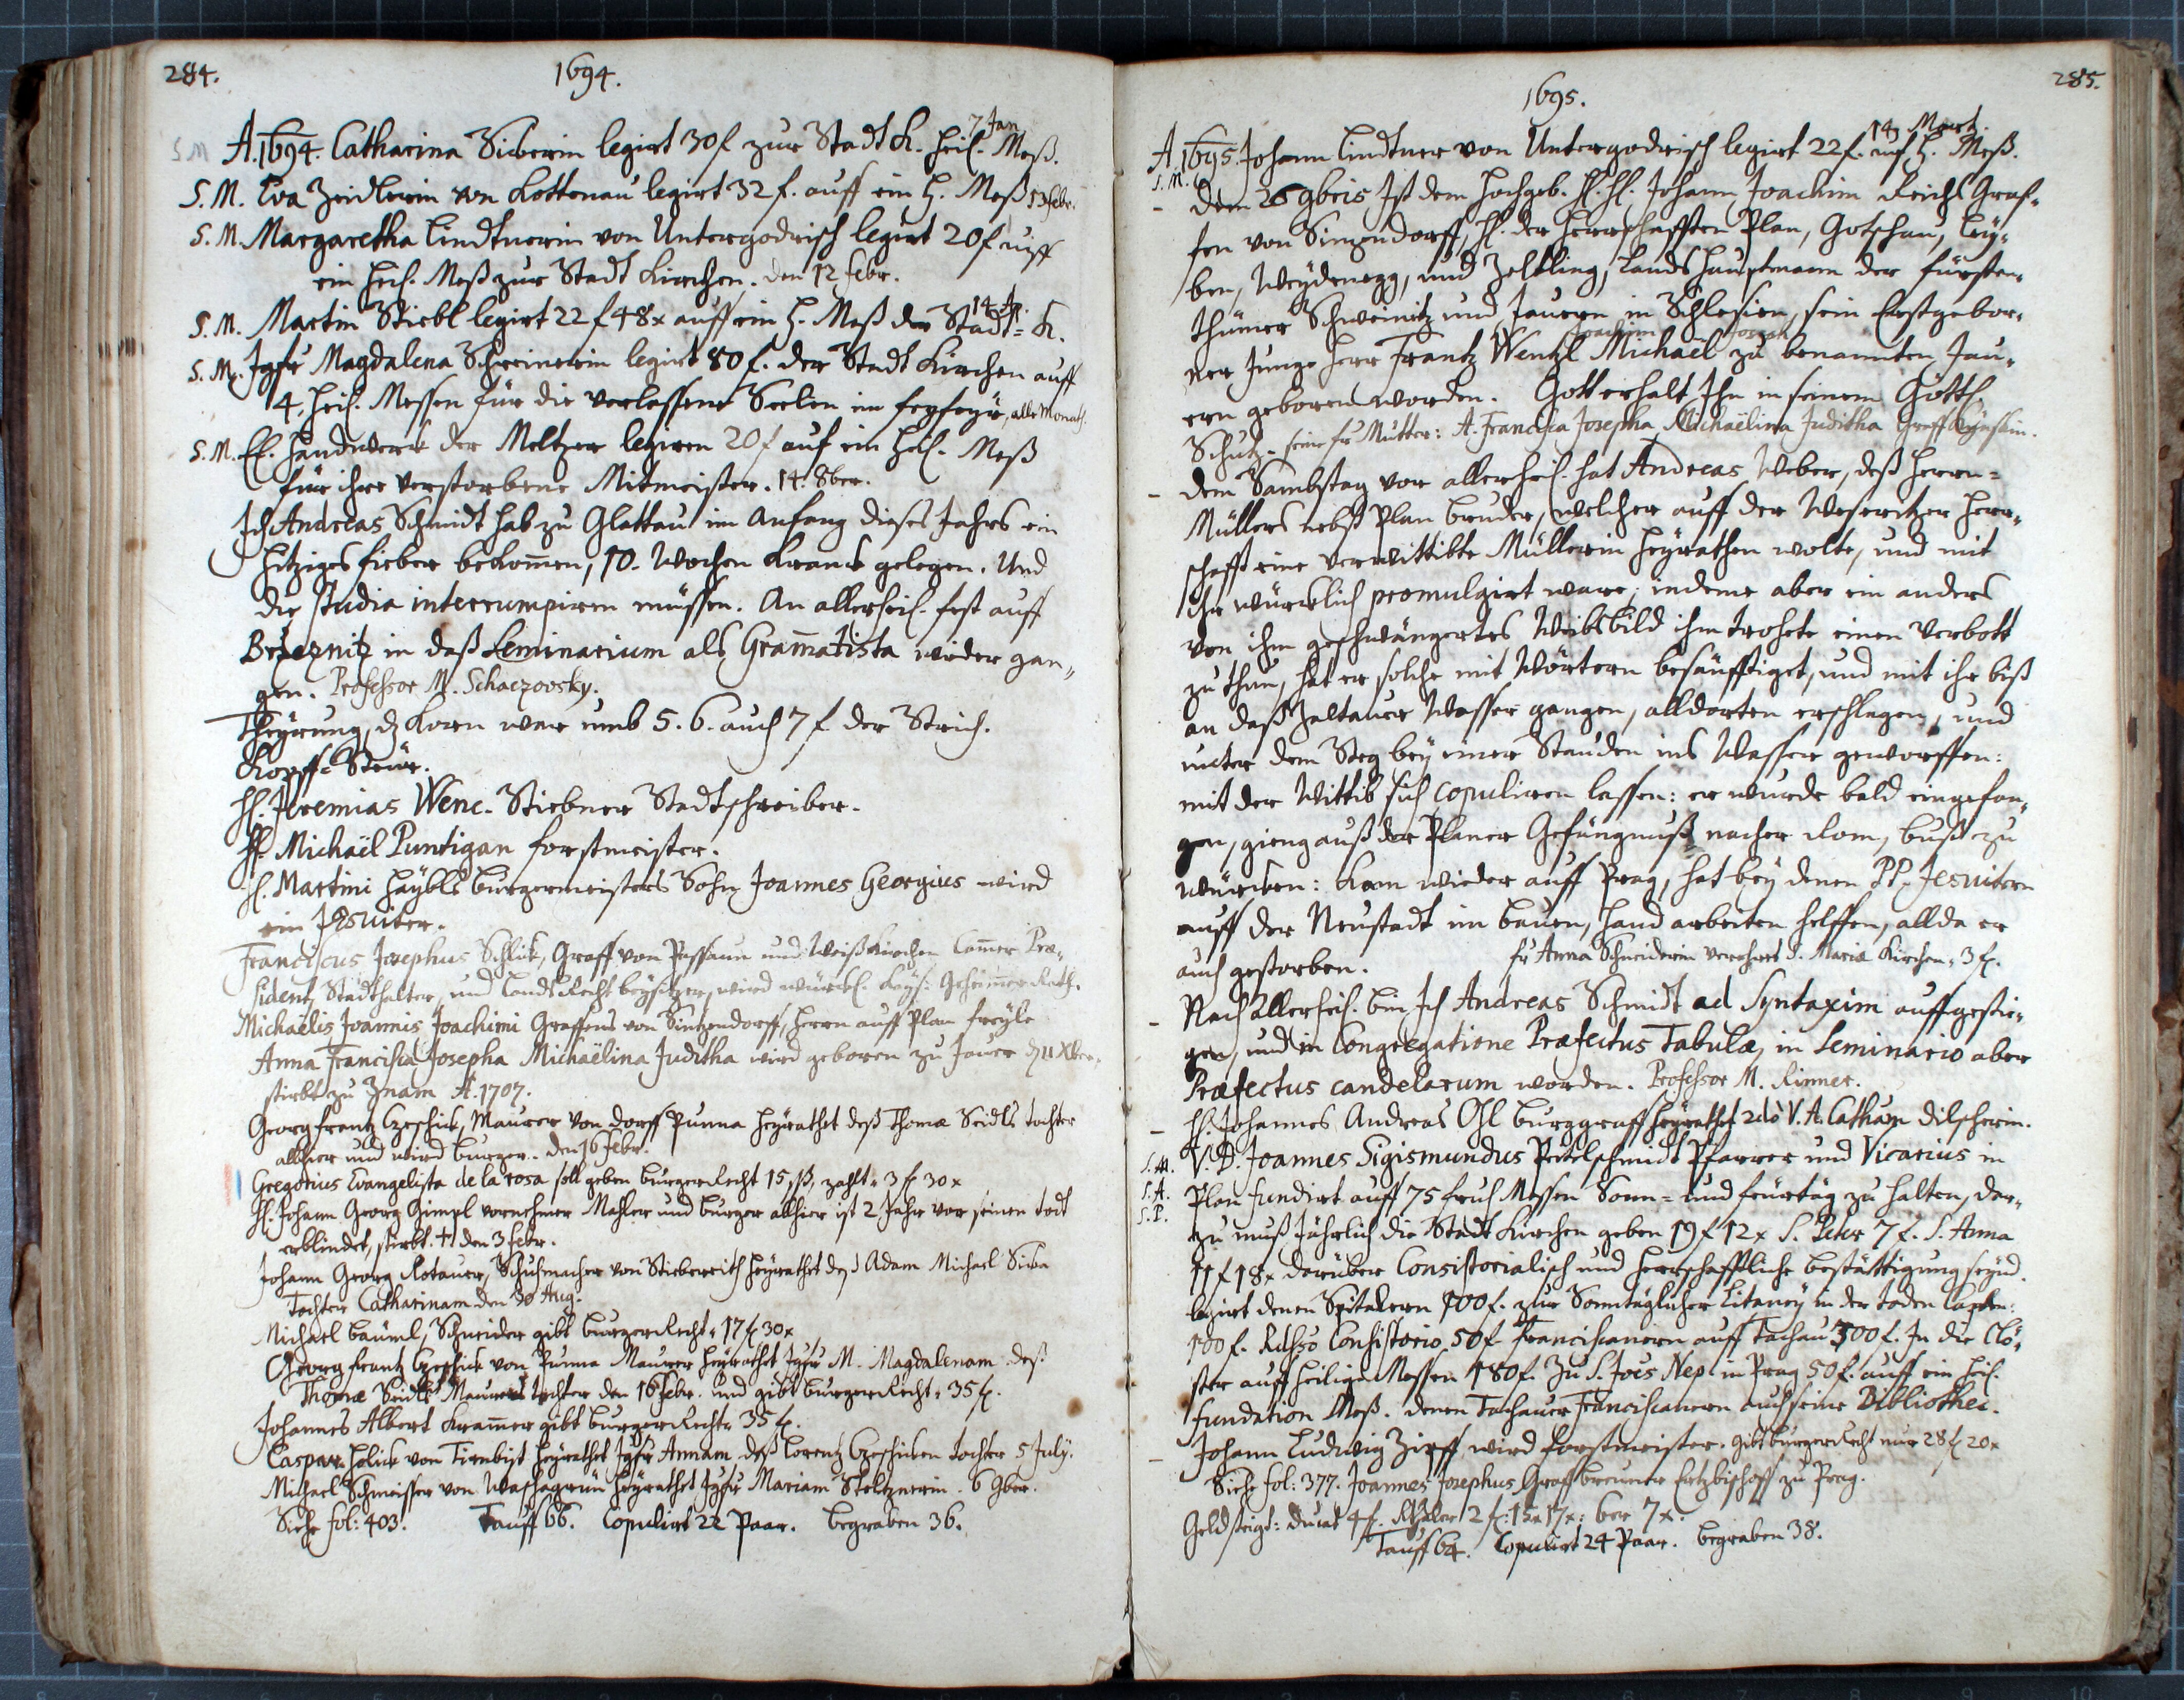 284.
1694.
7 Jan
S M A. 1694. Catharina Sieberin legirt 30 f zur Stadt K. heil. Meß.
S. M. Eva Zeidlerin von Kottenau legirt 32 f. auff ein H. Meß 13 febr.
S. M. Margaretha Lindtnerin von Untergodrisch legirt 20 f auff
ein heil. Meß zur Stadt Kirchen. den 12 febr.
14 Ap.
S. M. Martin Stiebl legirt 22 f 48 x auff ein H. Meß der Stadt= K.
S. M. Jgfr Magdalena Schreinerin legirt 80 f. der Stadt Kirchen auff
4. heil. Messen für die verlassene Seelen im fegfeyr, alle Monath.
S. M. E. E. Handwerk der Meltzer legiren 20 f auf ein heil. Meß
für ihre verstorbene Mitmeister. 14. 8ber.
Ich Andreas Schmidt hab zu Glattau im Anfang dieses Jahrs ein
hitziges fieber bekomen, 10. Wochen kranck gelegen. Und
die studia interrumpiren müssen. An allerheil. fest auff
Brzeznitz in daß Seminarium als Gramatista wieder gan,,
gen. Professor M. Schaczovsky.
Theyrung, dz Korn war umb 5. 6. auch 7 f der Strich.
Kopff=Steür.
H. Jeremias Wenc. Stiebner Stadtschreiber.
H. Michaël Puntigan forstmeister.
H. Martini Häybls burgermeisters Sohn Joannes Georgius wird
ein Jesuiter.
Franciscus Josephus Schlik, Graff von Passaun und Weißkirchen Camer Præ,,
sident, Stadthalter, und Landt Recht beysitzer, wird würckl. Kays: Geheimer Rath.
Michaëlis Joannis Joachimi Graffens von Sintzendorff, herrn auff Plan freyle
Anna Francisca Josepha Michaëlina Juditha wird geboren zu Jauer dz 11 Xber.
stirbt zu Znam A. 1707.
Georg frantz Czeschick, Maurer von dorff Punna heyrathet deß Thomæ Seidls tochter
allhier und wird burger. den 16 febr.
Gregorius Evangelista de la rosa soll geben burger Recht 15 ßß, zahlt = 3 f 30 x
H. Johann Georg Gimpl vornehmer Mahler und burger allhier ist 2 Jahr vor seinen todt
erblindet, stirbt. † den 3 febr.
Johann Georg Rotauer, Schuhmacher von Stiebenreith heyrathet deß Adam Michael
Tochter Catharinam den 30 Aug.
Michael bäuml, Schneider gibt burger Recht = 17 f 30 x
Georg frantz Czeschick von Punna Maurer heyrathet Jgfr M. Magdalenam deß
Thomæ Seidls Maurers tochter den 16 febr. und gibt burger Recht = 35 f.
Johannes Albert Kramer gibt burger Recht = 35 f.
Caspar Holick von heyrathet Jgfr Annam deß Lorentz Czeschicken tochter 5 July.
Michael Schmeisser von Waschagrün heyrathet Jgfr Mariam Steltznerin. 6 9ber.
Siehe fol: 403. Tauff 66. Copulirt 22 Paar. begraben 36.
285.
1695.
14 Mart.
A. 1695. Johann Lindtner von Untergodrisch legirt 22 f. auf H. Meß.
S. M.
– Den 26 9bris Ist dem Hochgeb. H. H. Johann Joachim Reichs Graf,,
fen von Sinzendorff, H. der Herrschafften Plan, Gotschau, Ley,,
ben, Weydenegg, und Zeltling, Lands Hauptmann der fürsten,,
thümer Schweinitz und Jauern in Schlesien, sein Erstgebor,,
Joachim Joseph
ner Junge Herr Frantz Wentzl Michaël zu benannten Jau,,
ern geboren worden. Gott erhalt Ihn in seinem Göttl.
Schutz. seine fr Mutter: A. Francisca Josepha Michaëlina Juditha Greff
– Den Sambstag vor allerheil. hat Andreas Weber, deß Herrn=
Müllers nebst Plan bruder, welcher auff der Weseritzer Herr,,
schafft eine verwittibte Müllerin heyrathen wolte, und mit
ihr würcklich promulgirt ware, indeme aber ein anders
von ihm geschwängertes Weibsbild ihm trohete einen Verbott
zu thun, hat er solche mit Wörtern besänfftiget, und mit ihr biß
an daß Zaltauer Wasser gangen, alldorten erschlagen, und
unter dem Steg bey einer Stauden ins Wasser geworffen:
mit der Wittib sich copuliren lassen: er wurde bald eingefan,,
gen, gieng auß der Planer Gefängnuß nacher Rom, buß zu
würcken: Kam wieder auff Prag, hat bey denen PP. Jesuitern
auff der Neustadt im bauen, hand arbeiten helffen, allda er
auch gestorben. fr Anna Schneiderin verehret S. Mariæ Kirchen = 3 f.
– Nach allerheil. bin Ich Andreas Schmidt ad Syntaxim auffgestie,,
gen, und in Congregatione Præfectus Tabulæ, in Seminario aber
Præfectus candelarum worden. Professor M. Rinner.
– H. Johannes Andreas Ohl burggraff heyrathet 2dò V. A. Catharn Dilscherin.
S. M. V. D. Joannes Sigismundus Peitelschmidt Pfarrer und Vicarius in
S. A. Plan fundirt auff 75 fruh Messen Sonn= und feürtäg zu halten, dar,,
S. P. zu muß Jährlich die Stadt Kirchen geben 19 f 12 x S. Peter 7 f. S. Anna
11 f 18 x darüber Consistorialisch und herrschafftliche bestättigung seynd.
legirt denen Spitalern 100 f. zur Sonntäglicher Litaney in der toden Capellen:
100 f. Rdsso Consistorio 50 f Franciscanern auff Tachau 300 f. In die Clö,,
ster auff heilige Messen 180 f. Zu S. Joës Nep. in Prag 50 f. auff ein heil.
fundation Meß. denen Tachauer Franciscanern auch seine Bibliothec.
– Johann Ludwig Zipff wird forstmeister. gibt burger Recht nur 28 f 20 x
Siehe fol: 377. Joannes Josephus Graff breuner Ertzbischoff zu Prag.
Geld steigt: ducat 4 f. Rthaler 2 f: 15 x 17 x: 6er 7 x.
Tauff 64. Copulirt 24 Paar. begraben 38.